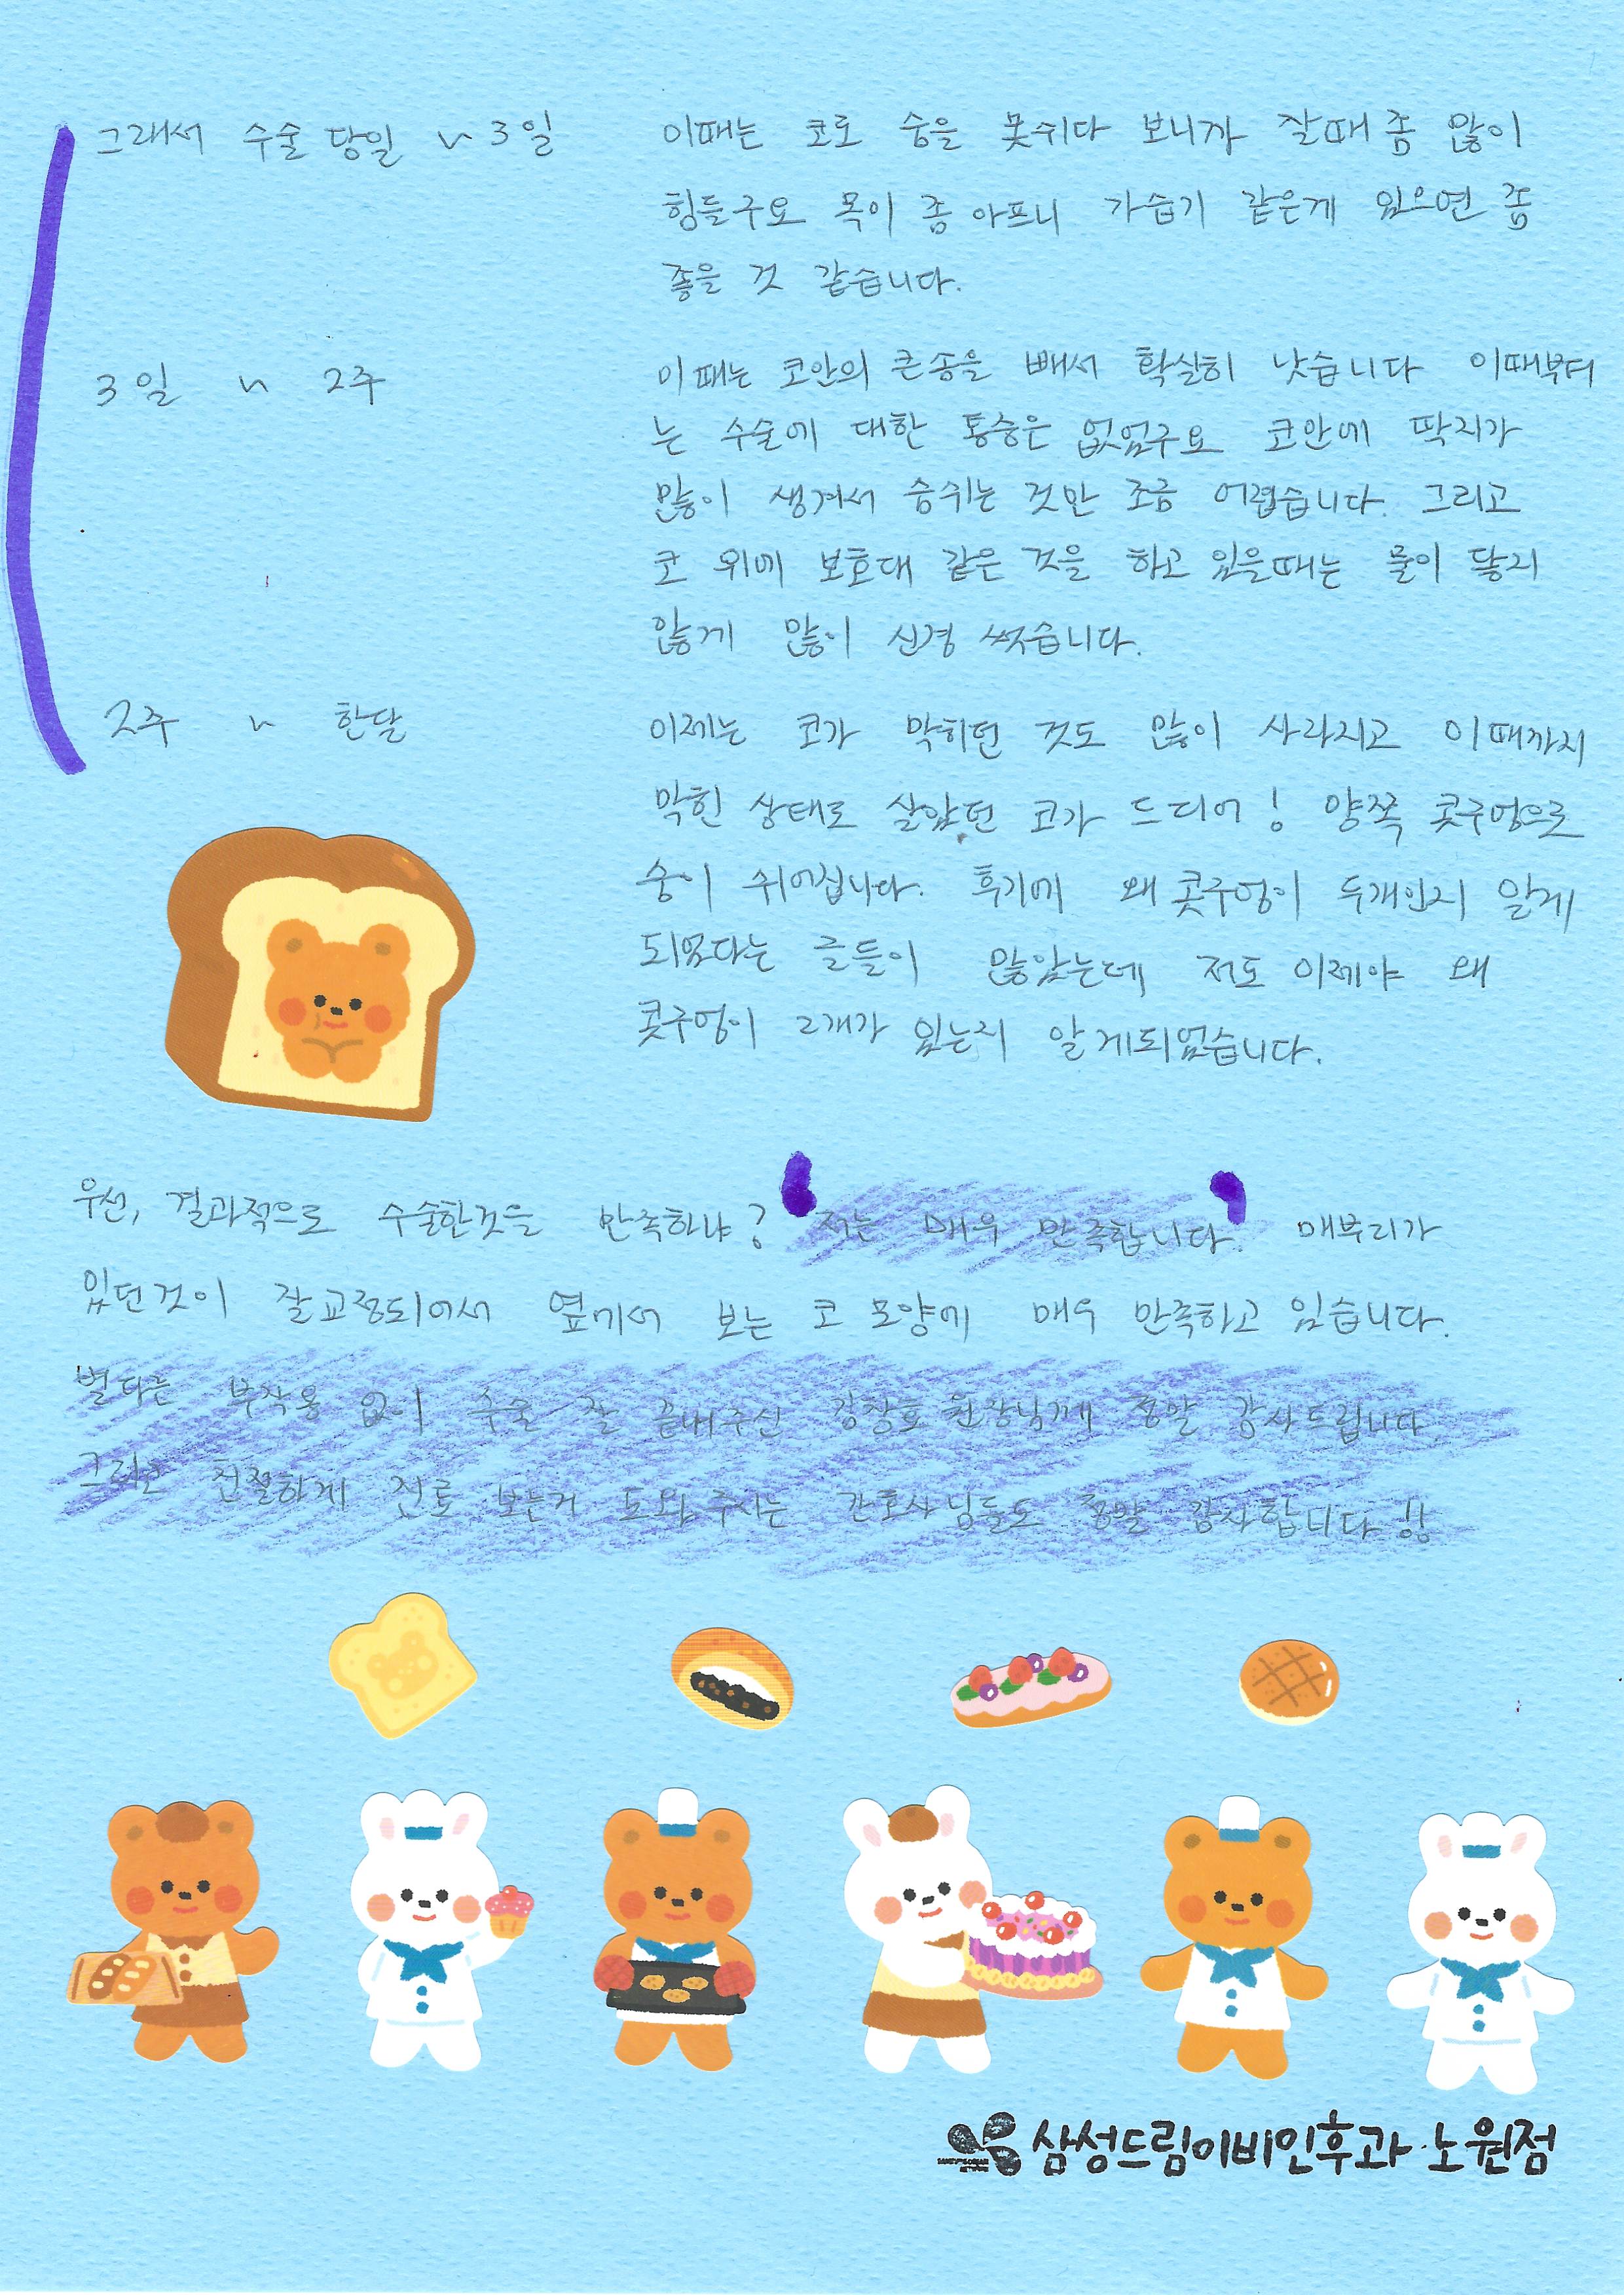 그래서 수술 당일 ~ 3일
이때는 코로 숨을 못쉬다 보니까 잘때 좀 많이
힘들구요 목이 좀 아프니 가습기 같은게 있으면 좀
좋을 것 같습니다.
3일 ~ 2주
이때는 코안의 큰솜을 빼서 확실히 낫습니다 이때부터
는 수술에 대한 통증은 없었구요 코안에 딱지가
많이 생겨서 숨쉬는 것만 조금 어렵습니다. 그리고
코 위에 보호대 같은 것을 하고 있을때는 물이 닿지
않게 많이 신경 썼습니다.
2주 ~ 한달
이제는 코가 막히던 것도 많이 사라지고 이때까지
막힌 상태로 살았던 코가 드디어! 양쪽 콧구멍으로
숨이 쉬어집니다. 후기에 왜 콧구멍이 두개인지 알게
되었다는 글들이 많았는데 저도 이제야 왜
콧구멍이 2개가 있는지 알게되었습니다.
우선, 결과적으로 수술한것을 만족하냐? '저는 매우 만족합니다.' 매부리가
있던것이 잘교정되어서 옆에서 보는 코 모양에 매우 만족하고 있습니다.
별다른 부작용 없이 수술 잘 끝내주신 강창호 원장님께 정말 감사드립니다
그리고 친절하게 진료 보는거 도와주시는 간호사님들도 정말 감사합니다!!
삼성드림이비인후과 노원점